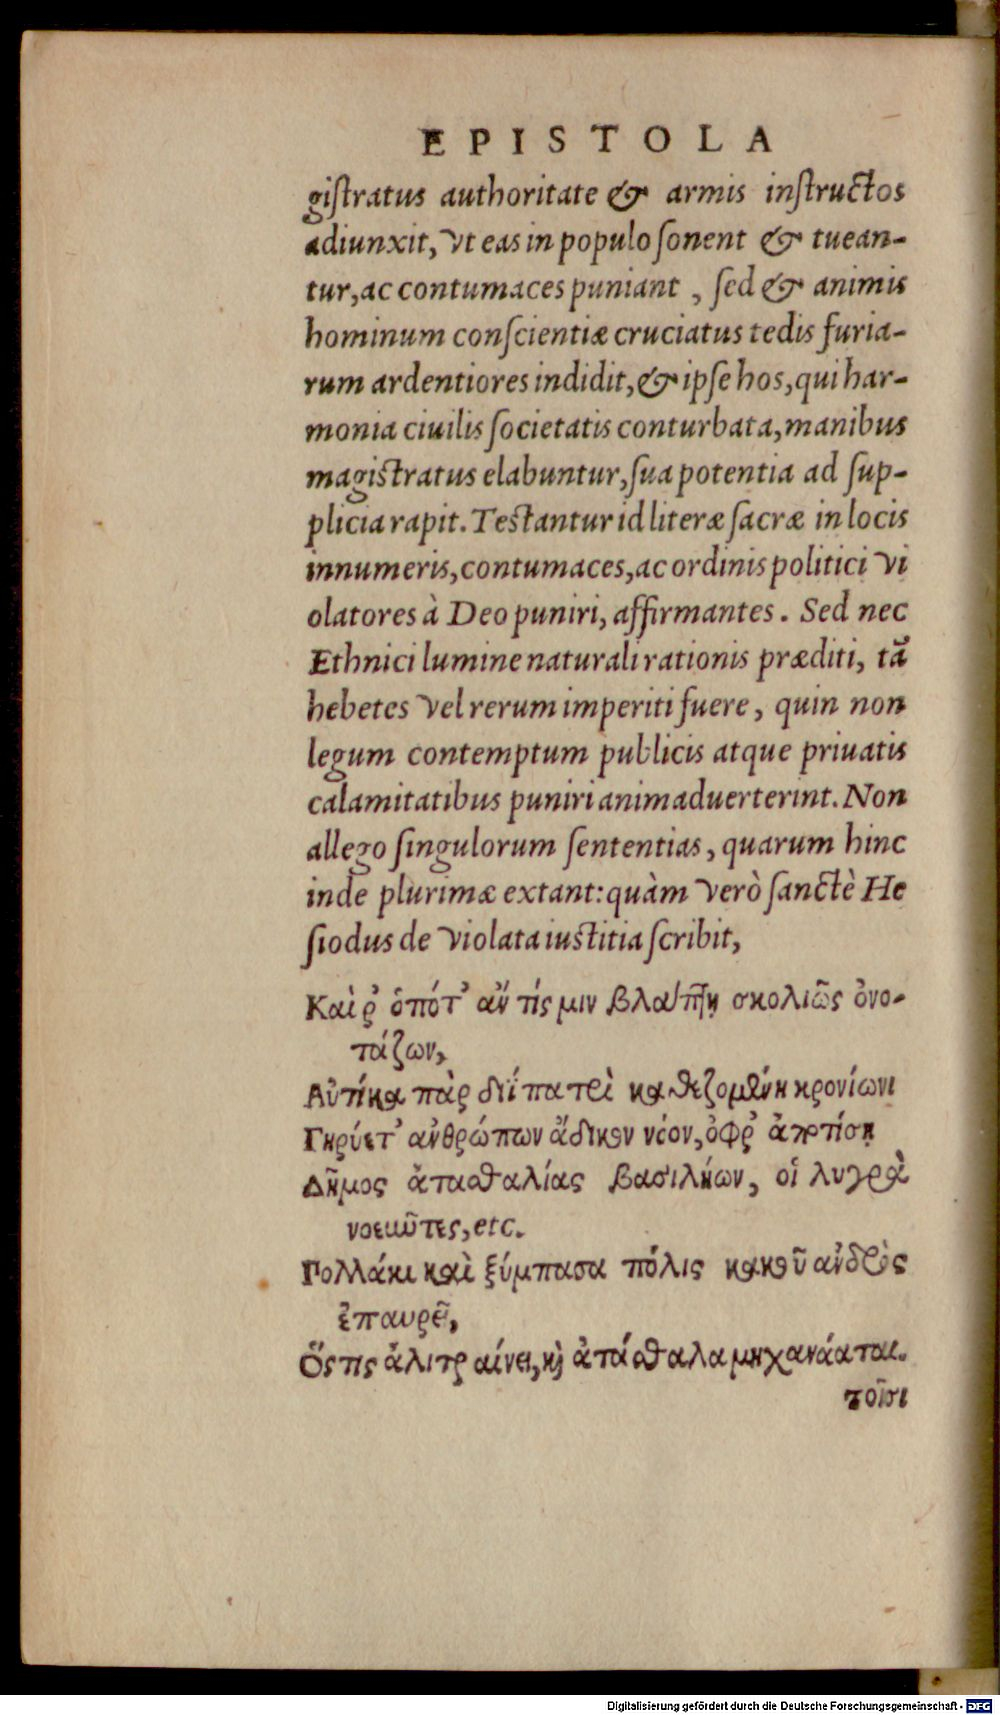 EPISTOLA
giſtratus authoritate & armis inſtructos
adiunxit, vt eas in populo ſonent & tuean-
tur, ac contumaces puniant, ſed & animis
hominum conſcientiæ cruciatus tedis furia-
rum ardentiores indidit, & ipſe hos, qui har-
monia ciuilis ſocietatis conturbata, manibus
magiſtratus elabuntur, ſua potentia ad ſup-
plicia rapit. Teſtantur id literæ ſacræ in locis
innumeris, contumaces, ac ordinis politici vi
olatores à Deo puniri, affirmantes. Sed nec
Ethnici lumine naturali rationis præditi, tã
hebetes vel rerum imperiti fuere, quin non
legum contemptum publicis atque priuatis
calamitatibus puniri animaduerterint. Non
allego ſingulorum ſententias, quarum hinc
inde plurimæ extant: quàm verò ſanctè He
ſiodus de violata iustitia ſcribit,
Καὶ ῥ᾽ ὁπότ᾽ ἄν τίς μιν βλάπτῃ σκολιῶς ὀνο-
τάζων,
Αὐτίκα πὰρ διῒ πατρὶ καθεζομένη κρονίωνι
Γηρύετ᾽ ἀνθρώπων ἄδικον νέον, ὀφρ᾽ ἀποτίση
Δῆμος ἀτασθαλίας βασιλήων, οἱ λυγρὰ
νοεωῦτες, etc.
Γολλάκι καὶ ξύμπασα πόλις κακοῦ ἀνδρὸς
ἐπαυρεῖ,
Ὅςτις ἀλιτραίνει, καὶ ἀτάσθαλα μηχανάαται.
τοῖσι
Digitalisierung gefördert durch die Deutsche Forschungsgemeinschaft - DFG